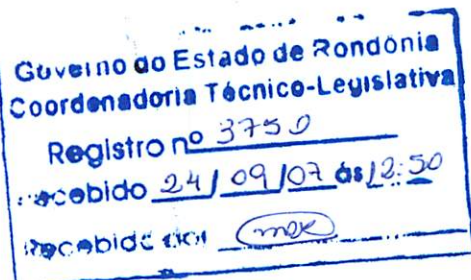 Governo do Estado de Rondônia
Coordenadoria Técnico-Legislativa
Registro nº 3750
Recebido 24/09/07 às 12:50
Recebido por